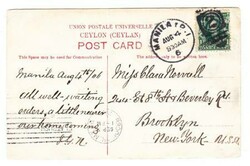 UNION POSTALE UNIVERSELLE
CEYLON (CEYLAN)
POST CARD
This Space may be used for Communication
The Address only to be written here
MANILA P.I.
AUG 4
6
Manila Aug 4th/06
All well - getting
orders, a little nearer
our homecoming
Miss Clara Norvall
East 8th St Beverley Rd
Brooklyn
New York. U.S.A.